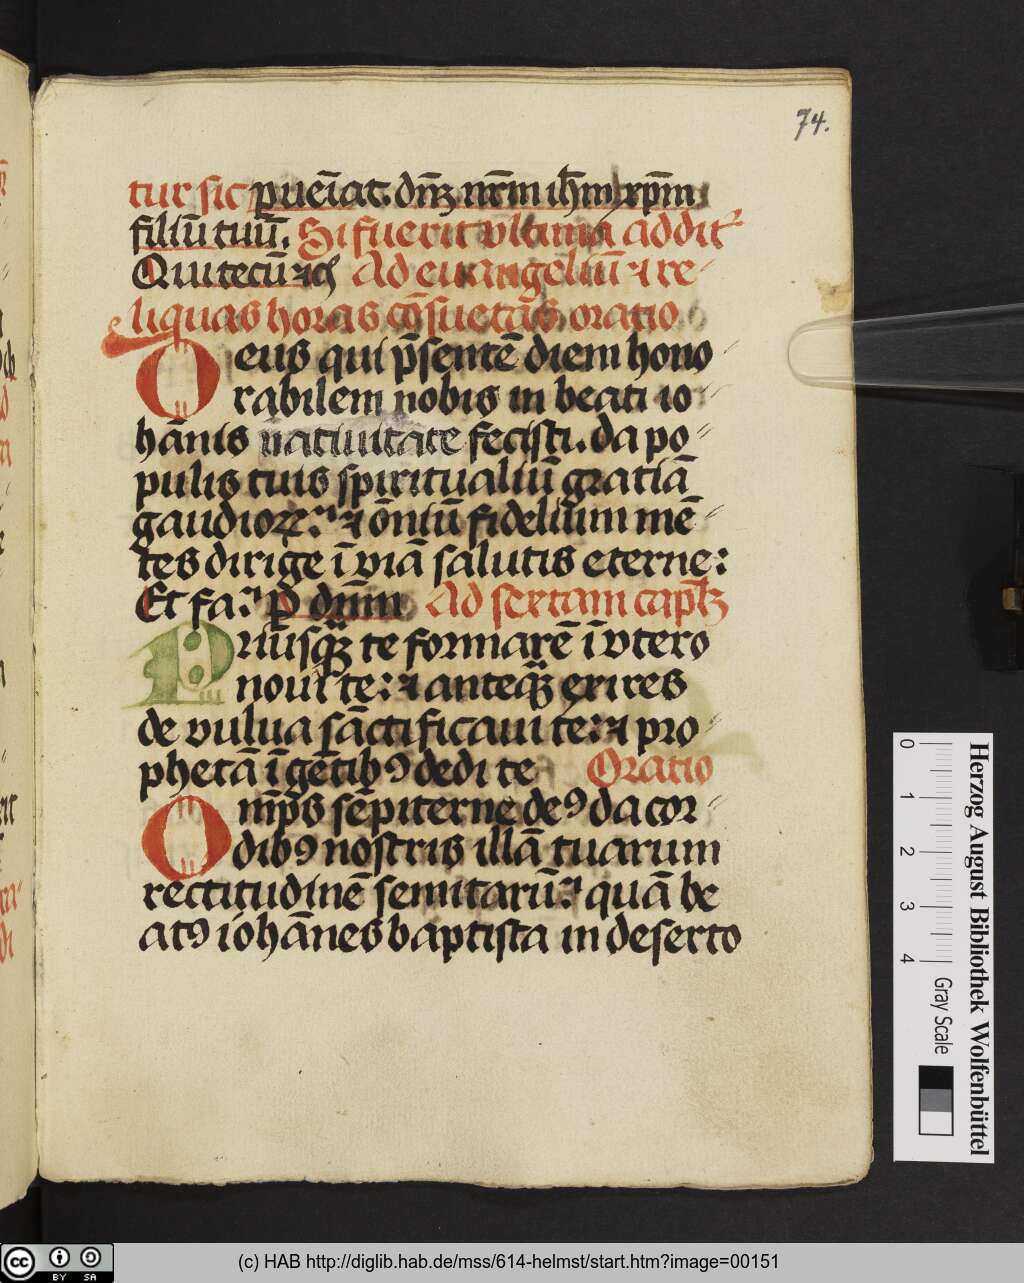 74.
tur sic pueiāt. dn̄ꝫ nr̄m ih̄m xp̄m
filiū tuū. Si fuerit vltima addit᷑
Qui tecū ⁊c̄ Ad euangeliū ⁊ re
liquas horas cōsuetas oratio
Deus qui p̄sentē diem hono
rabilem nobis in beati io
hānis natiuitate fecisti. da po
pulis tuis spiritualiū gratiā
gaudioꝝ: ⁊ ōniū fidelium mē
tes dirige ī viā salutis eterne:
Et fa: ꝑ dn̄m Ad sextam capl̄ꝫ
Priusqꝫ te formarē ī vtero
noui te: ⁊ anteqꝫ exires
de vulua sāctificaui te: ⁊ pro
phetā ī gētibꝰ dedi te Oratio
Omp̄s sēpiterne deꝰ da cor
dibꝰ nostris illā tuarum
rectitudinē semitarū: quā be
atꝰ iohānes baptista in deserto
0 1 2 3 4
Gray Scale
Herzog August Bibliothek Wolfenbüttel
cc BY SA
(c) HAB http://diglib.hab.de/mss/614-helmst/start.htm?image=00151